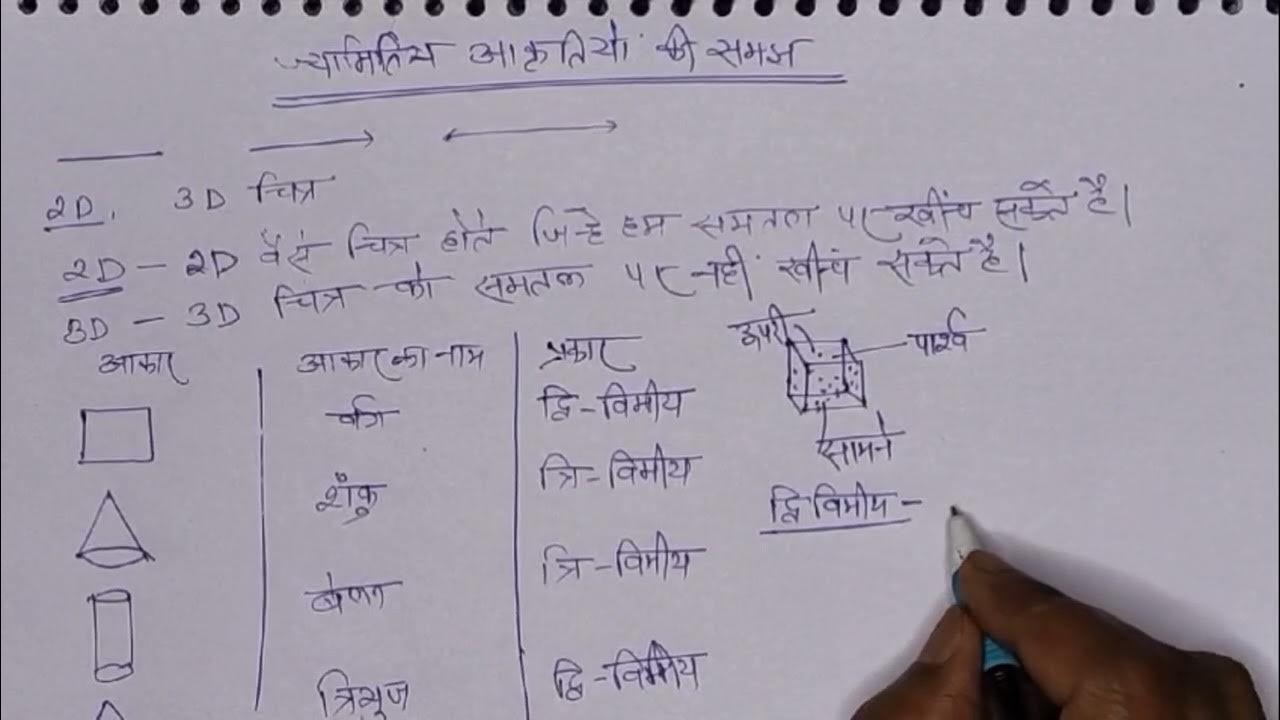 ज्यामितिय आकृतियों की समझ
2D, 3D चित्र
2D – 2D वैसे चित्र होते जिन्हे हम समतल पर खींच सकते है।
3D – 3D चित्र को समतल पर नहीं खींच सकते है।
आकार आकार का नाम प्रकार
वर्ग द्वि-विमीय
शंकु त्रि-विमीय
बेलन त्रि-विमीय
त्रिभुज द्वि-विमीय
ऊपरी
पार्श्व
सामने
द्वि विमीय –